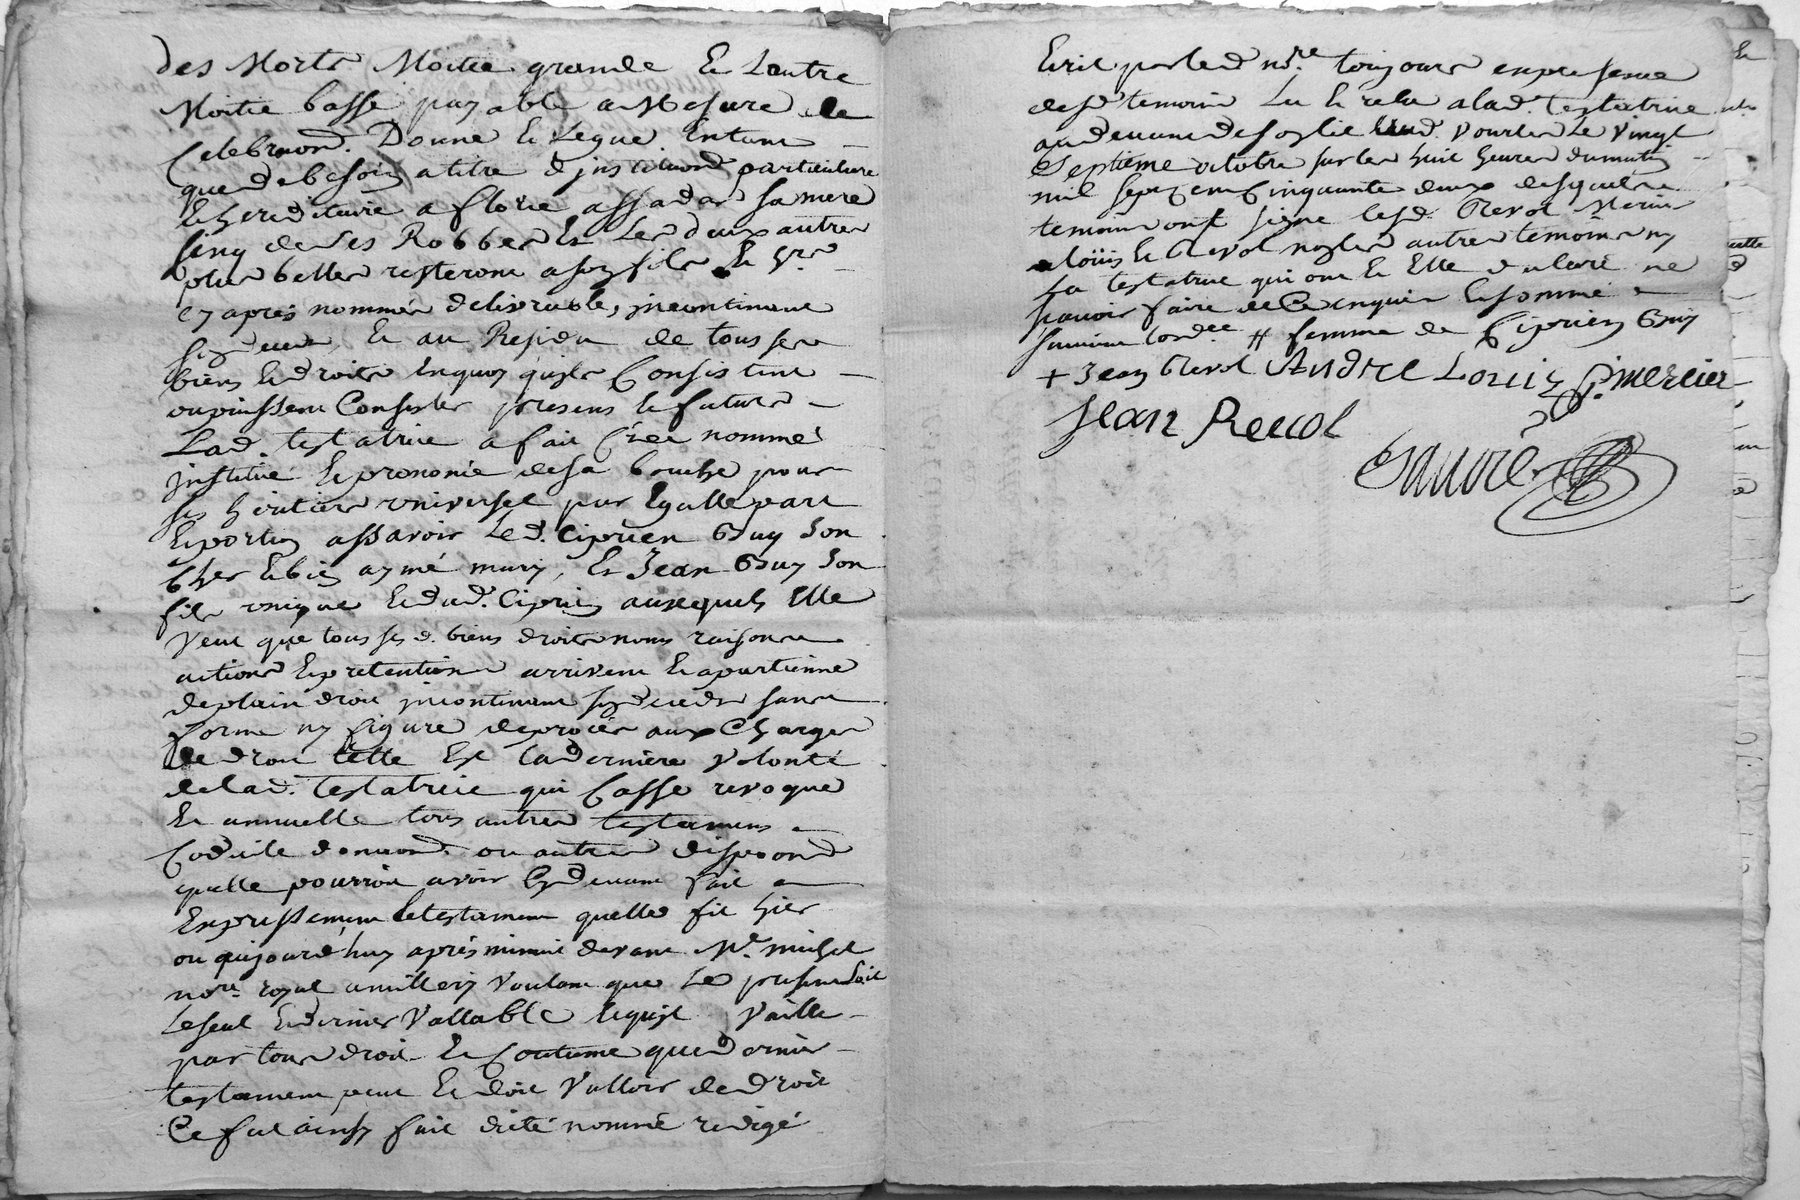 des Morts Moitie grande Et Lautre
Moitie basse payable a Mesure de
Celebraon. Donne Et Legue Entant
que de besoin a titre d'institution particuliere
Et hereditaire a Florie assadas sa mere
sinq de ses Robbes Et Les deux autres
plus belles resteront a son fils Et hr.
cy après nommés delivrable, incontinant
son decès Et au Residu de tous ses
biens Et droits Enquoy quils Consistent
ou puissent Consister presens Et futurs
Lad. testatrice a fait Créé nommé
institué Et prononcé de sa bouche pour
ses heritiers universel par Egalle part
Et portion assavoir Led. Ciprien Guy son
Cher Et bien aymé mary, Et Jean Guy son
fils unique Et dud. Ciprien auxquels Elle
Veut que tous ses d. biens droits noms raisons
actions Et pretentions arrivent Et apartienne
de plain droit incontinant son decès sans
forme ny figure de procès aux Charges
de droit telle Est La derniere Volonté
de lad. testatrice qui Casse revoque
Et annuelle tous autres testamens
Codicile donnaon. ou autres dispoon
quelle pourroit avoir Cy devant fait
Expressement le testament quelle fit hier
ou aujourd'huy après minuit devant Me. michel
nore. royal a millery Voulant que Le present soit
Le seul Et dernier Vallable Et quil Vaille
par tous droit Et Coutume que dernier
testament peut Et doit Valloir de droit
Ce fut ainsy fait dicté nommé redigé
Ecrit par led nore. toujours en presence
desd temoins Lu Et relu a lad. testatrice
au devant de son lit aud. Vourles Le Vingt
Septième octobre sur les huit heures du matin
mil sept cent Cinquante deux desquels
temoins ont signé lesd. Revol Mercier
Loüis Et Revol non les autres temoins ny
La testatrice qui ont Et Elle declaré ne
scavoir faire de Ce enquis Et sommé
suivant lord.ce # femme de Ciprien Guy
+ Jean Revol Andre Louis P. mercier
Jean Revol